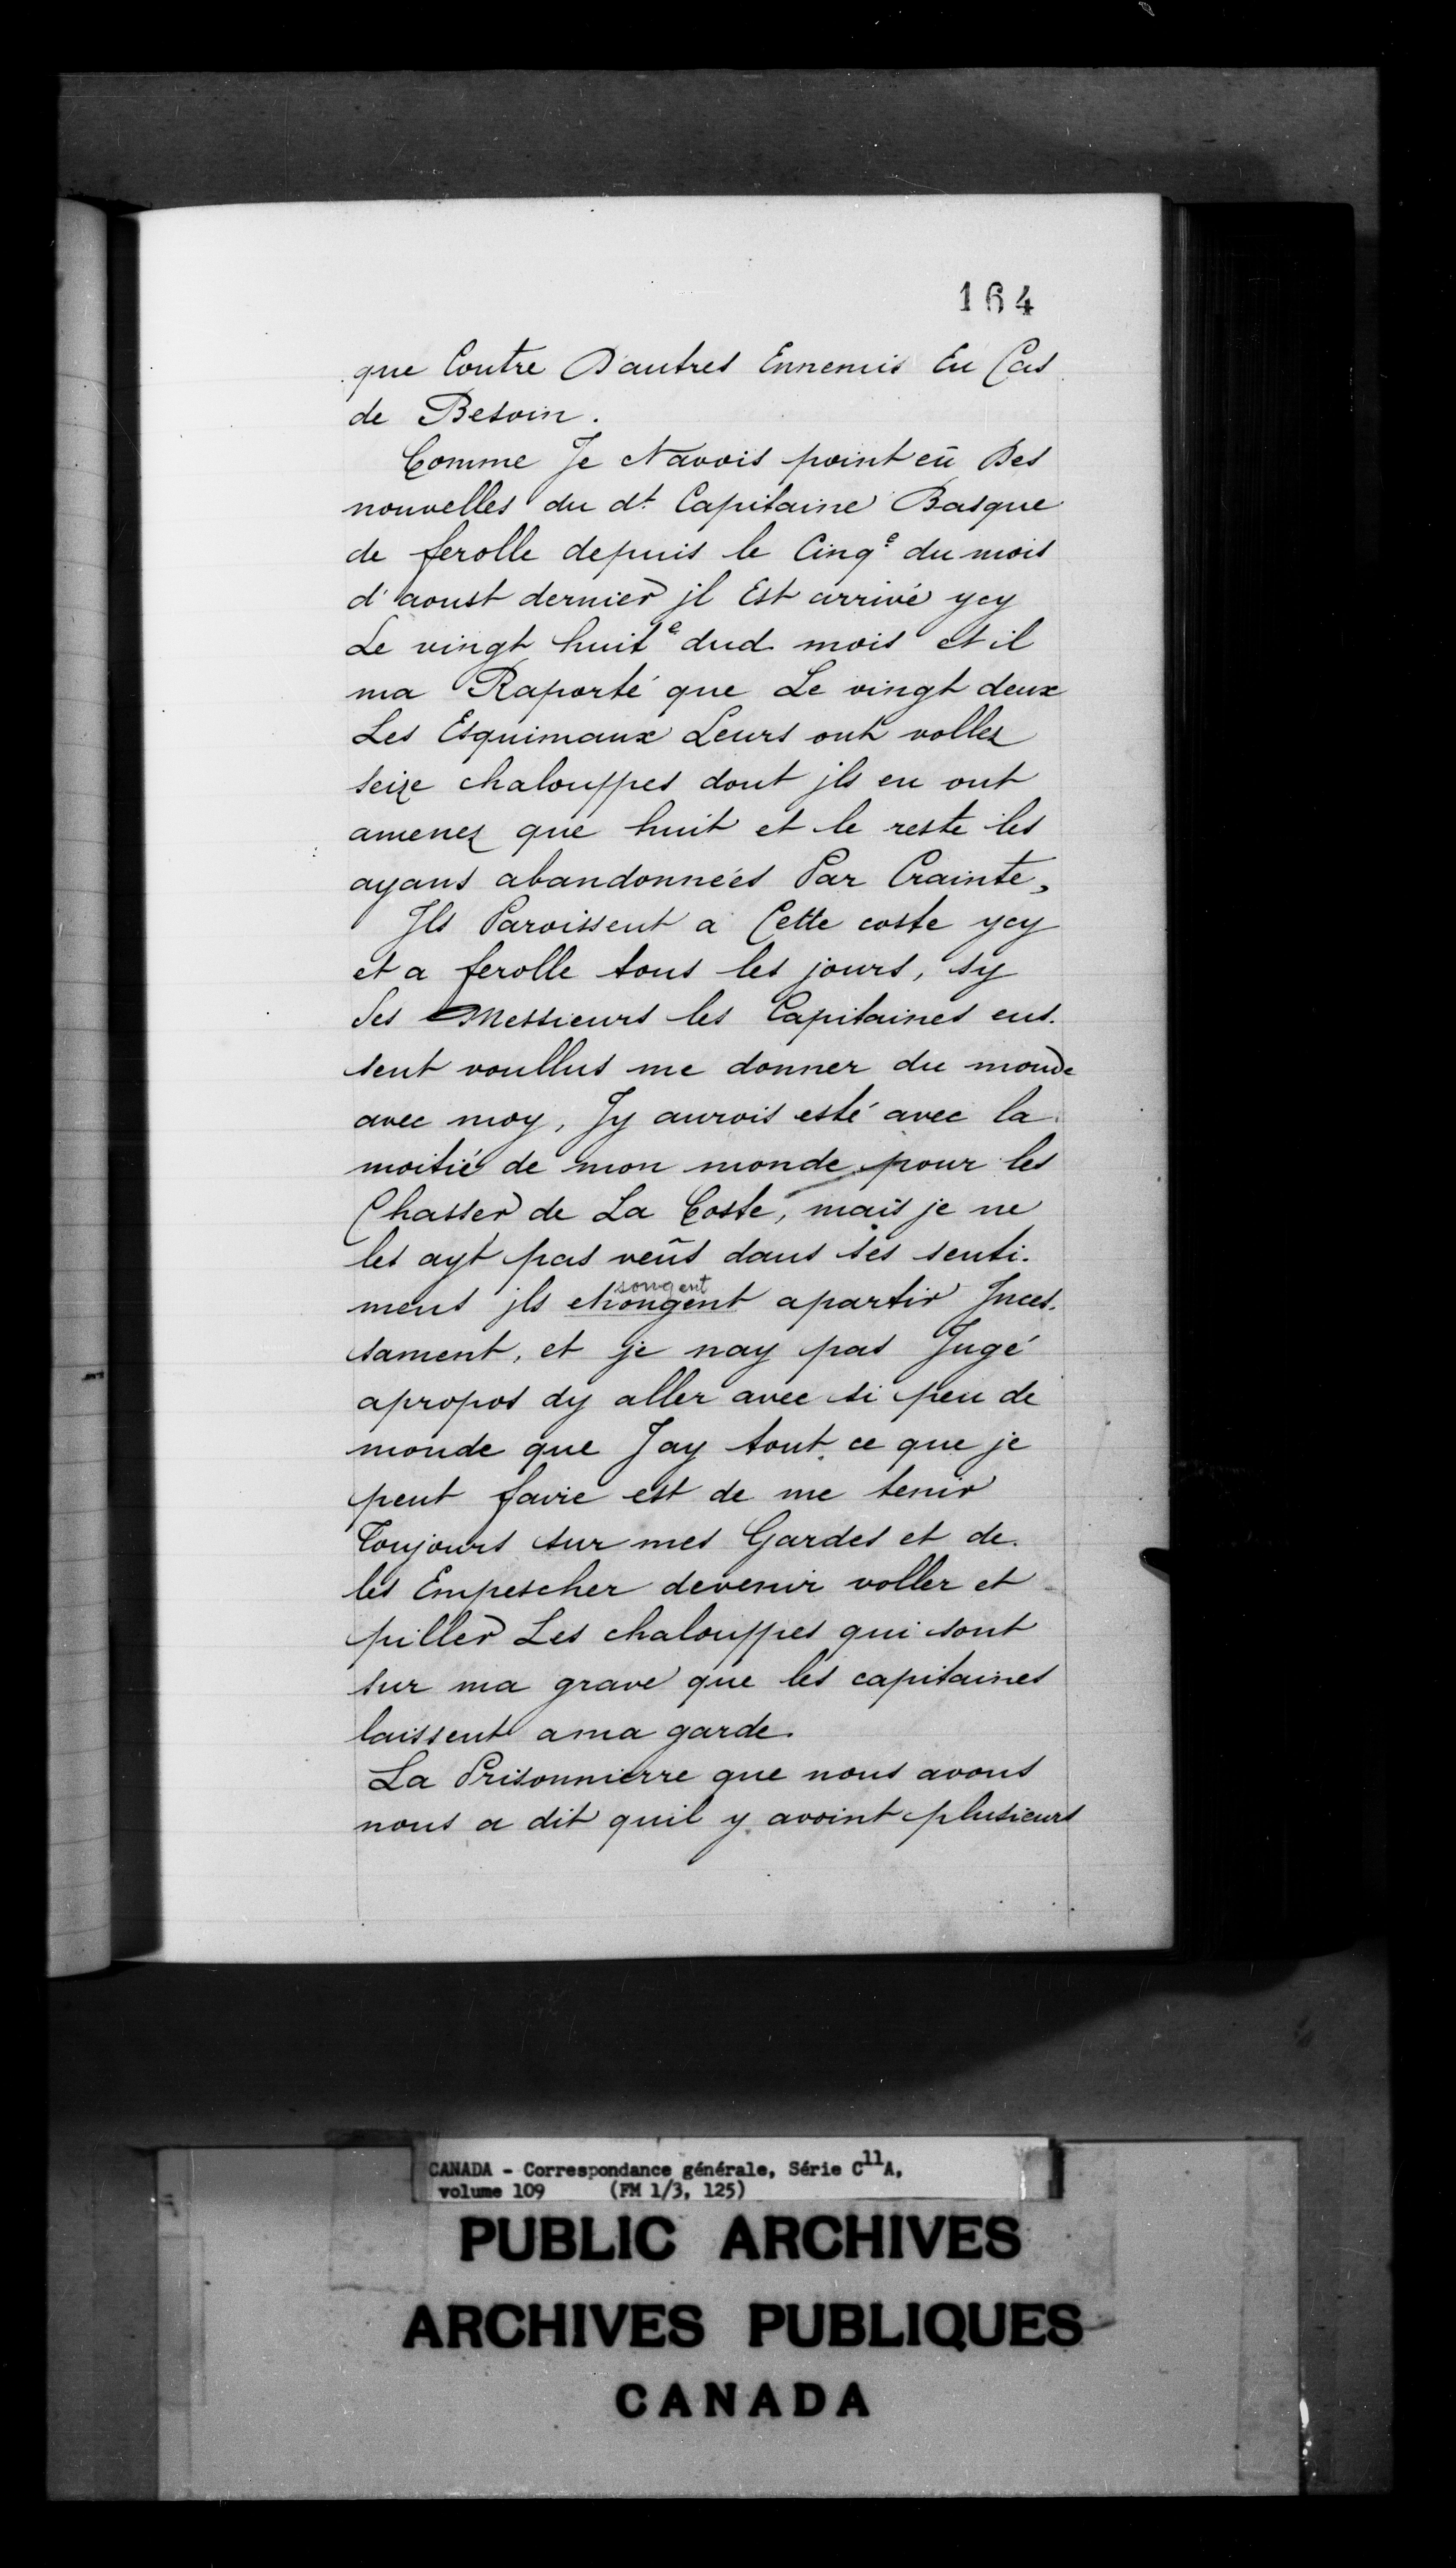 164
que Contre D'autres Ennemis En Cas
de Besoin.
Comme Je Navois point eû Des
nouvelles du dt. Capitaine Basque
de ferolle depuis le Cinqe du mois
d'aoust dernier jl Est arrivé ycy
Le vingt huite dud. mois et il
ma Raporté que Le vingt deux
Les Esquimaux Leurs ont vollez
seize chalouppes dont jls en ont
amenez que huit et le reste les
ayans abandonnées Par Crainte,
Jls Paroissent a Cette coste ycy
et a ferolle tous les jours, sy
Ses Messieurs les Capitaines eus.
sent voullus me donner du monde
avec moy, Jy aurois esté avec la
moitié de mon monde pour les
Chasser de La Coste, mais je ne
les ayt pas veûs dans ses senti.
songent
ments jls chongent apartir Jnces.
sament, et je nay pas Jugé
apropos dy aller avec si peu de
monde que Jay tout ce que je
peut favie est de me tenir
Toujours sur mes Gardes et de
les Empescher devenir voller et
piller Les chalouppes qui sont
sur ma grave que les capitaines
laissent a ma garde.
La Prisonnierre que nous avons
nous a dit quil y avoint plusieurs
CANADA - Correspondance générale, Série C11A,
volume 109 (FM 1/3, 125)
PUBLIC ARCHIVES
ARCHIVES PUBLIQUES
CANADA